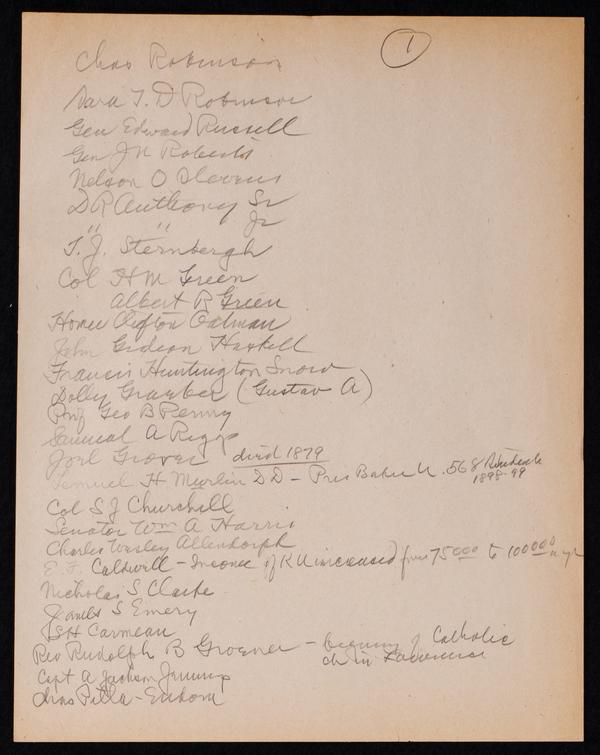 1
Chas Robinson
Sara T. D Robinson
Gen Edward Russell
Gen J N Roberts
Nelson O Stevens
D R Anthony Sr
" " Jr
T. J. Sternbergh
Col H M Green
Albert R Green
Homer Clifton Oatman
John Gideon Haskell
Francis Huntington Snow
Dolly Graeber (Gustav A)
Prof Geo B Penny
Samual A Riggs
Joel Grover died 1879
Lemuel H Murlin DD - Pres Baker U. 568 Students
1898-99
Col S J Churchill
Senator Wm A Harris
Charles Wesley Allendorph
E. F. Caldwell - Income of K U increased from 75000 to 100000 a yr
Nicholas S Clarke
James S Emery
S H Carmean
Rev Rudolph B Groener - of Catholic
ch in Lawrence
Capt A Jackson Jennings
Chas Pilla - Eudora